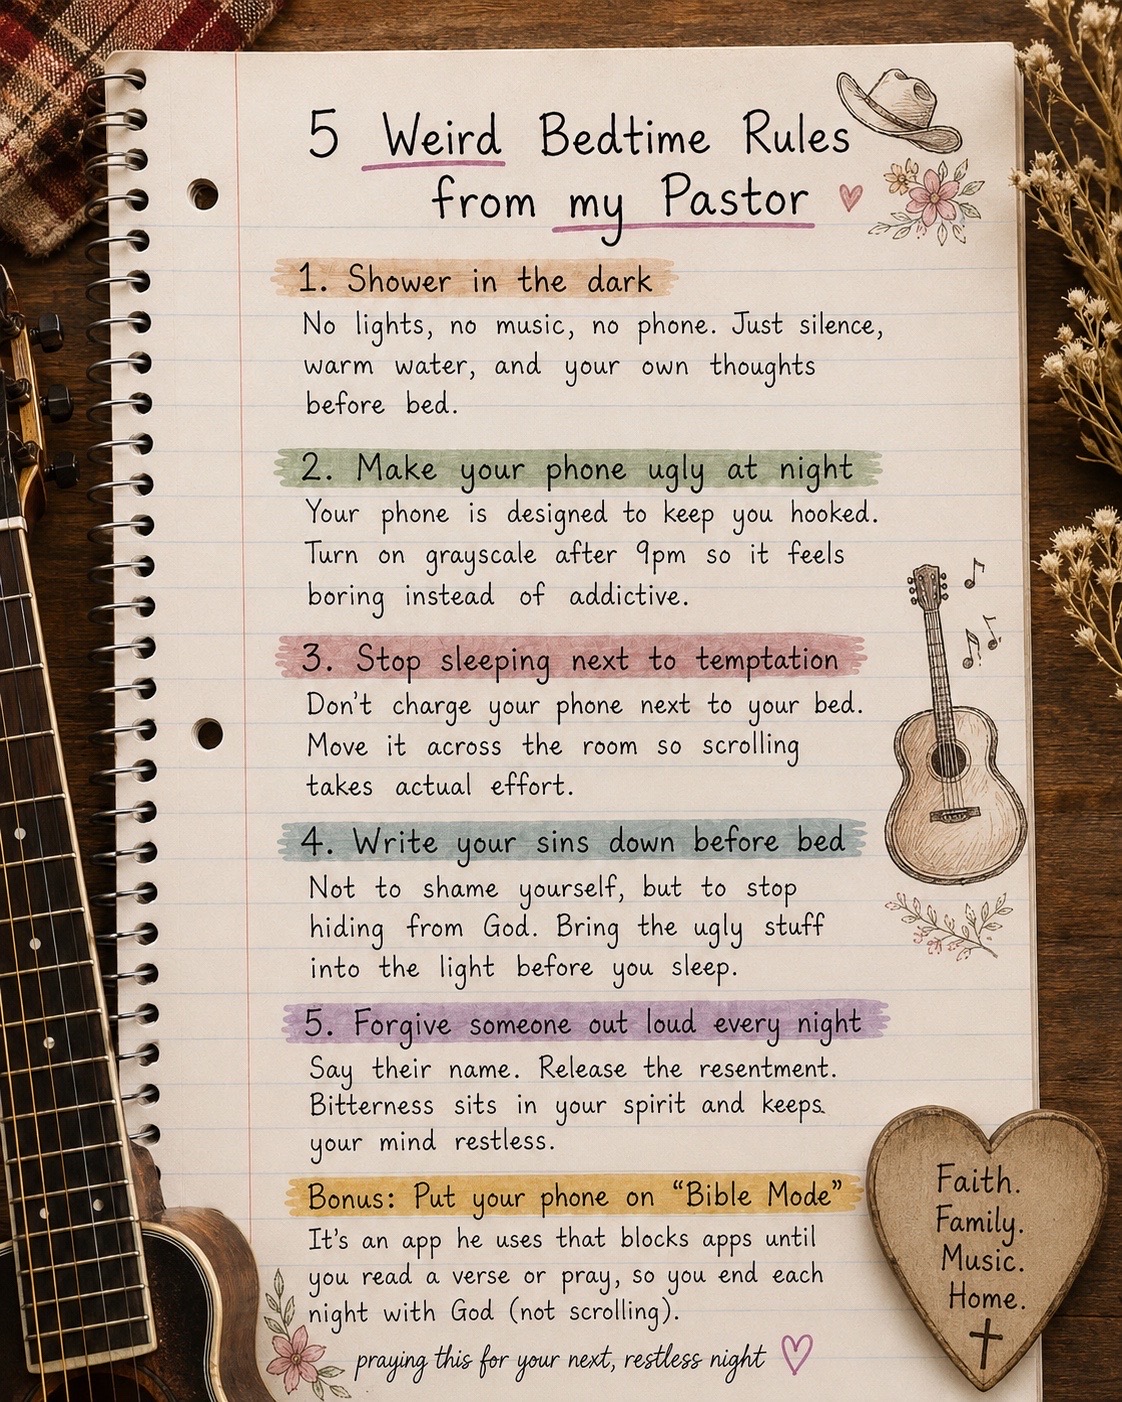 5 Weird Bedtime Rules
from my Pastor
1. Shower in the dark
No lights, no music, no phone. Just silence,
warm water, and your own thoughts
before bed.
2. Make your phone ugly at night
Your phone is designed to keep you hooked.
Turn on grayscale after 9pm so it feels
boring instead of addictive.
3. Stop sleeping next to temptation
Don't charge your phone next to your bed.
Move it across the room so scrolling
takes actual effort.
4. Write your sins down before bed
Not to shame yourself, but to stop
hiding from God. Bring the ugly stuff
into the light before you sleep.
5. Forgive someone out loud every night
Say their name. Release the resentment.
Bitterness sits in your spirit and keeps
your mind restless.
Bonus: Put your phone on “Bible Mode”
It's an app he uses that blocks apps until
you read a verse or pray, so you end each
night with God (not scrolling).
praying this for your next, restless night
Faith.
Family.
Music.
Home.